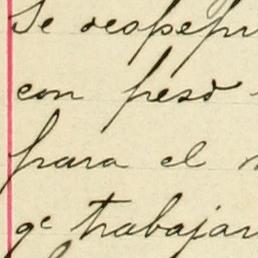 Se
con peso
para el
qᵉ trabajar